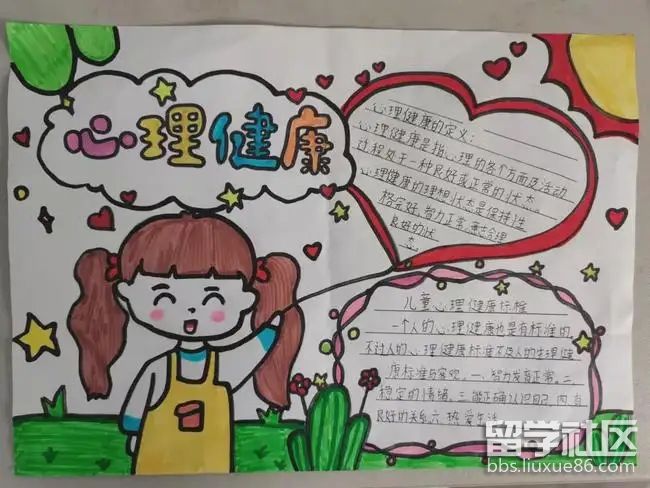 心理健康
心理健康的定义：
心理健康是指心理的各个方面及活动
过程处于一种良好或正常的状态。
心理健康的理想状态是保持性
格完好、智力正常、意志合理
良好的状
态。
儿童心理健康标准
一个人的心理健康也是有标准的，
不过人的心理健康标准不及人的生理健
康标准与客观。一、智力发育正常。二、
稳定的情绪。三、能正确认识自己
良好的 六、热爱生活
留学社区
bbs.liuxue86.com